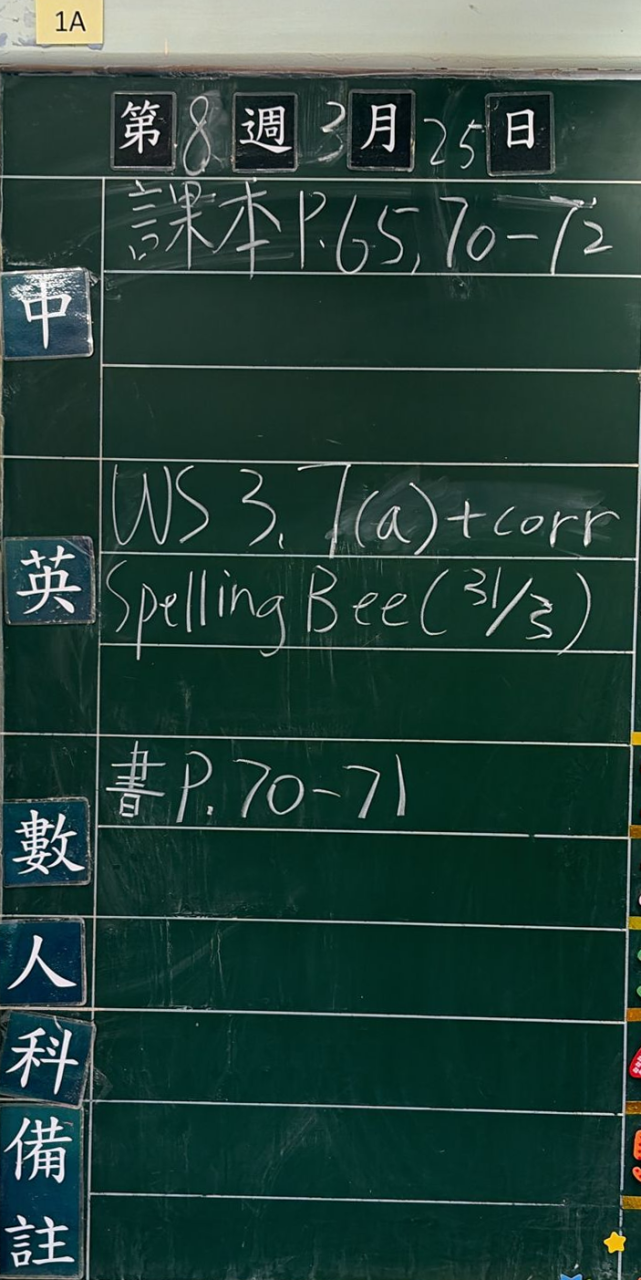 1A
第 8 週 3 月 25 日
課本 P.65, 70-72
中
WS 3. 7(a)+corr
英
Spelling Bee (31/3)
書 P. 70-71
數
人
科
備
註